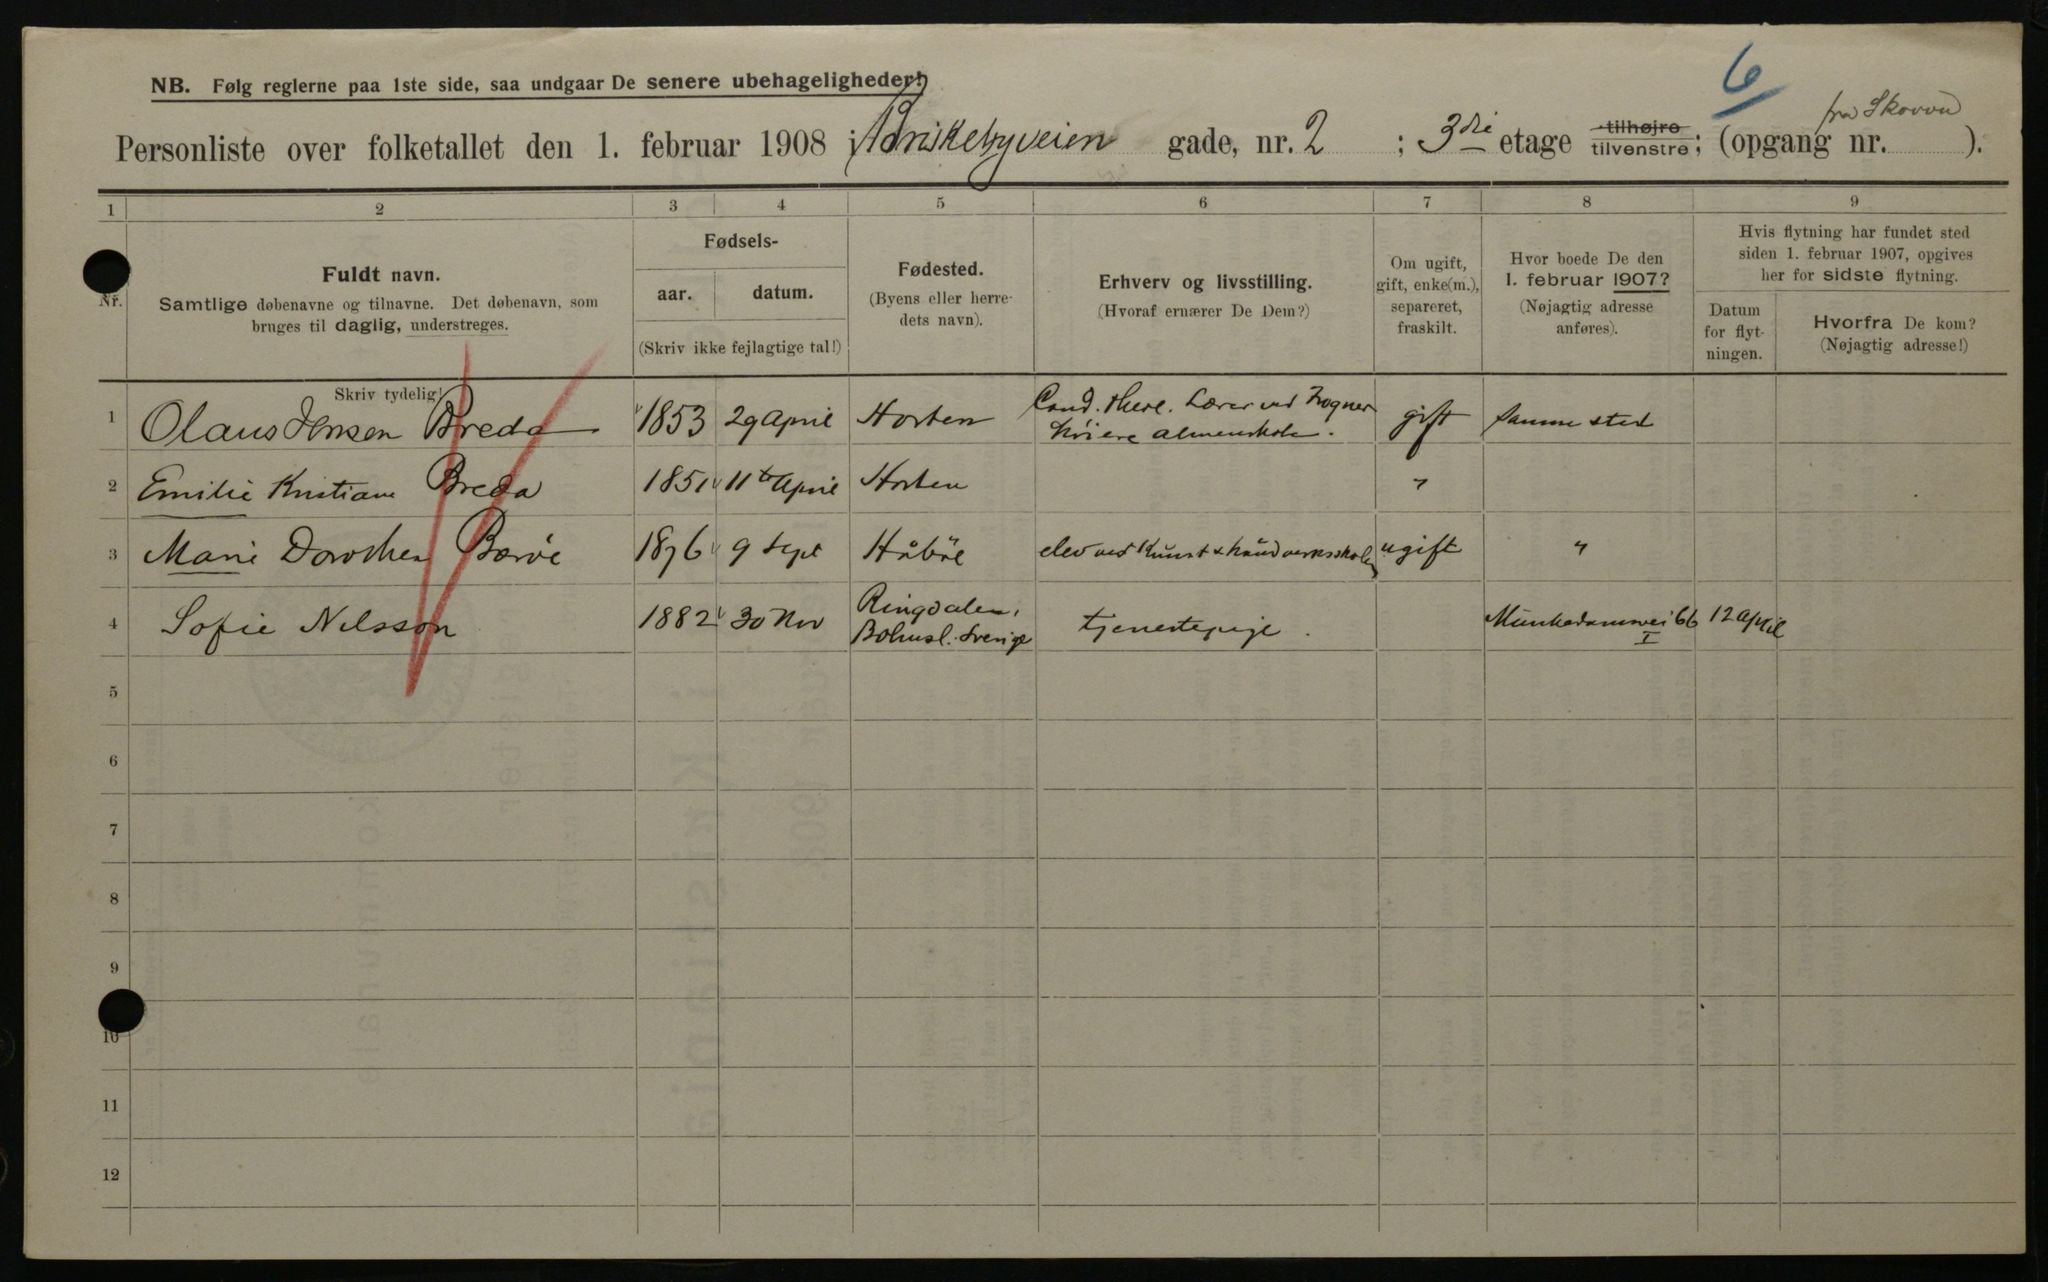 6
NB. Følg reglerne paa 1ste side, saa undgaar De senere ubehageligheder!
fra Skovvn
Personliste over folketallet den 1. februar 1908 i Briskebyveien gade, nr. 2 ; 3die etage tilhøjre tilvenstre; (opgang nr. ).
1 2 3 4 5 6 7 8 9
Nr.
Fuldt navn.
Samtlige døbenavne og tilnavne. Det døbenavn, som
bruges til daglig, understreges.
Fødsels-
aar. datum.
(Skriv ikke fejlagtige tal!)
Fødested.
(Byens eller herre-
dets navn).
Erhverv og livsstilling.
(Hvoraf ernærer De Dem?)
Om ugift,
gift, enke(m.),
separeret,
fraskilt.
Hvor boede De den
1. februar 1907?
(Nøjagtig adresse
anføres).
Hvis flytning har fundet sted
siden 1. februar 1907, opgives
her for sidste flytning.
Datum
for flyt-
ningen.
Hvorfra De kom?
(Nøjagtig adresse!)
Skriv tydelig!
1 Olaus Jensen Breda 1853 29 April Horten Cand. theol. Lærer ved Frogner gift samme sted
høiere almenskole.
2 Emilie Kristiane Breda 1851 11te April Horten "
3 Marie Dorothea Barøe 1876 9 Sept Håbøl elev ved Kunst & håndverksskolen ugift "
4 Sofie Nilsson 1882 30 Nov Ringdalen, tjenestepige. Munkedamsvei 66 12 April
Bohusl. Sverige I
5
6
7
8
9
10
11
12